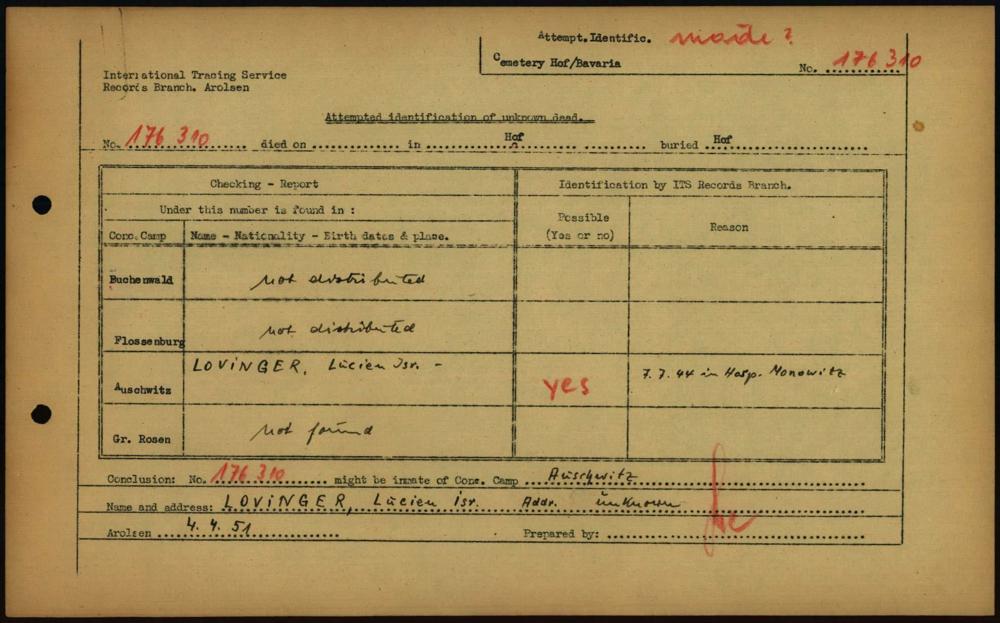 Attempt. Identific. made ?
Cemetery Hof/Bavaria
No. 176 310
International Tracing Service
Records Branch. Arolsen
Attempted identification of unknown dead.
No. 176 310 died on in Hof buried Hof
Checking - Report
Identification by ITS Records Branch.
Under this number is found in :
Possible
(Yes or no)
Reason
Conc. Camp
Name - Nationality - Birth dates & place.
Buchenwald
not distributed
Flossenburg
not distributed
Auschwitz
LOVINGER, Lucien Isr. -
yes
7.7.44 in Hosp. Monowitz
Gr. Rosen
not found
Conclusion: No. 176 310 might be inmate of Conc. Camp Auschwitz
Name and address: LOVINGER, Lucien Isr. Addr. unknown
Arolsen 4.4.51 Prepared by: